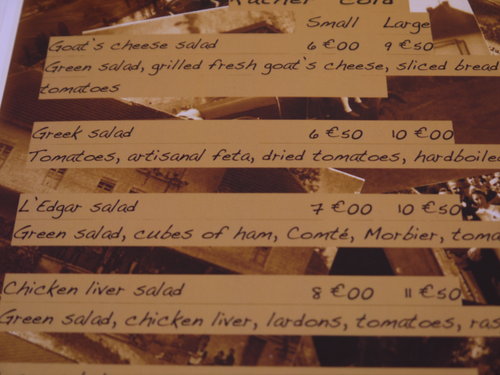 Rather Cold
Small Large
Goat's cheese salad 6 €00 9 €50
Green salad, grilled fresh goat's cheese, sliced bread
tomatoes
Greek salad 6 €50 10 €00
Tomatoes, artisanal feta, dried tomatoes, hardboiled
L'Edgar salad 7 €00 10 €50
Green salad, cubes of ham, Comté, Morbier, toma
Chicken liver salad 8 €00 11 €50
Green salad, chicken liver, lardons, tomatoes, ras